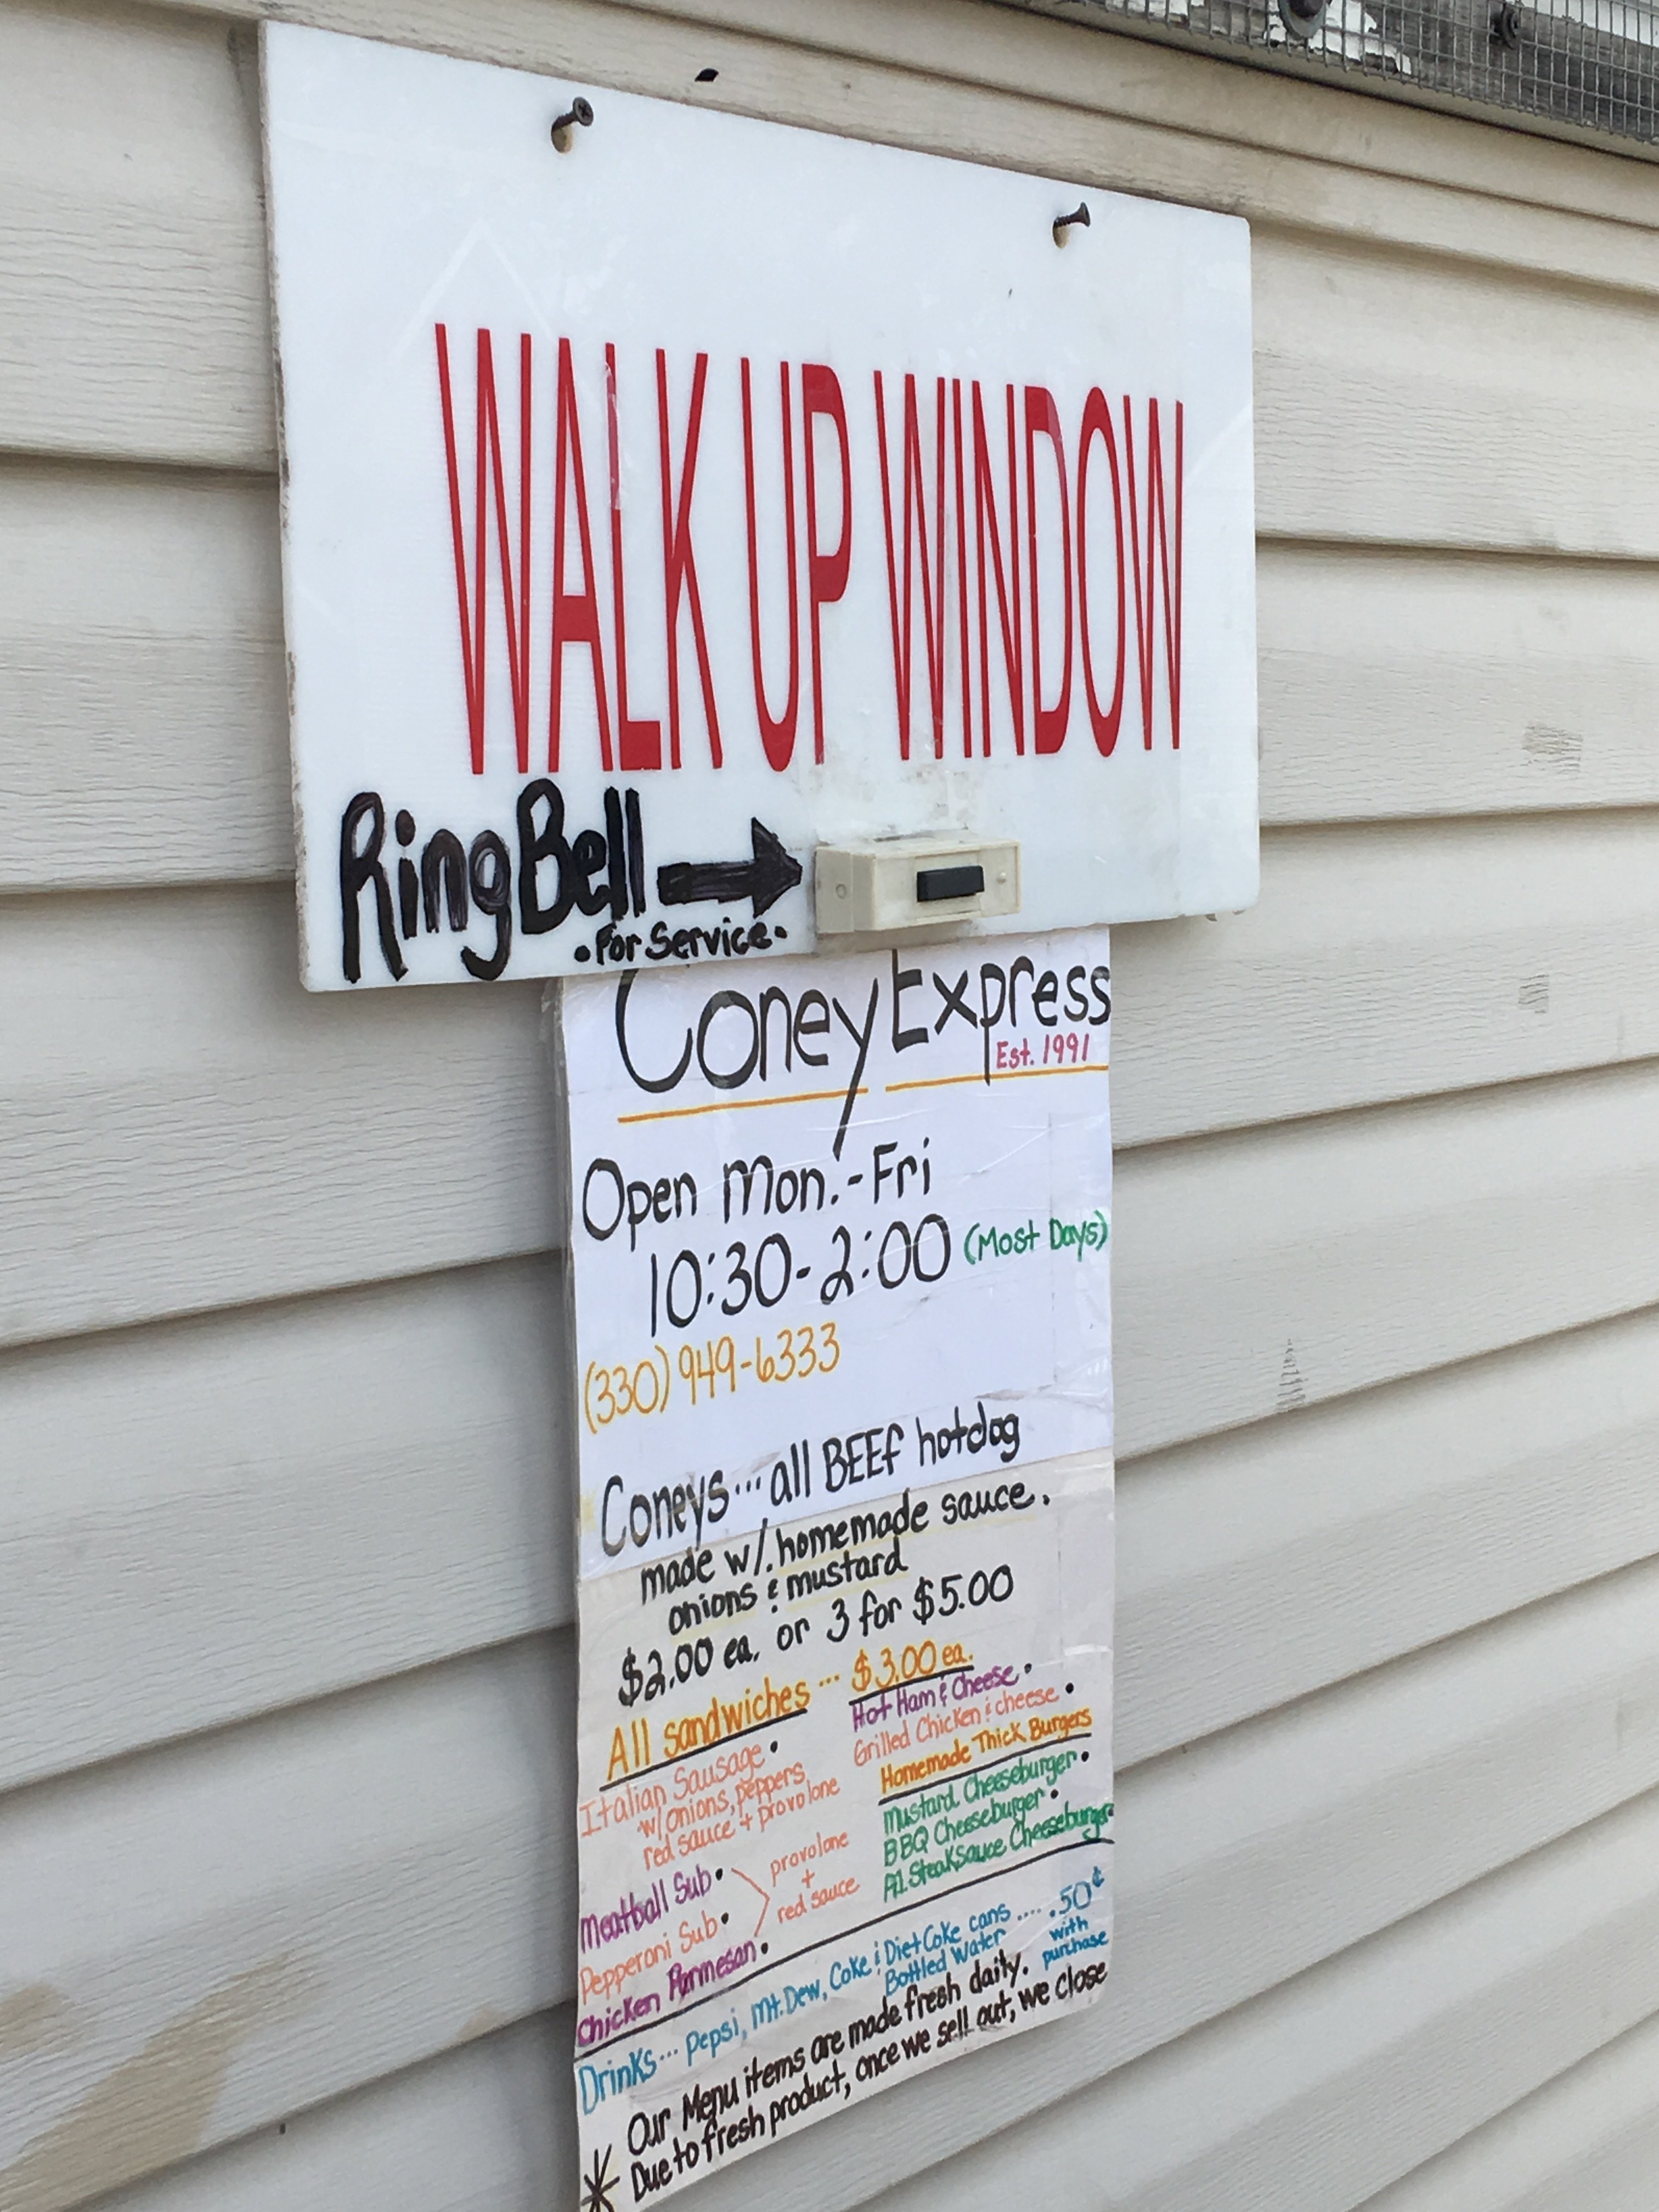 WALK UP WINDOW
Ring Bell
•For Service•
Coney Express
Est. 1991
Open Mon.-Fri
10:30-2:00 (Most Days)
(330) 949-6333
Coneys... all BEEF hotdog
made w/. homemade sauce.
onions & mustard
$2.00 ea. or 3 for $5.00
All sandwiches ... $3.00 ea.
Italian Sausage •
w/onions, peppers
red sauce + provolone
Meatball Sub •
Pepperoni Sub •
Chicken Parmesan •
provolone
+
red sauce
Hot Ham & Cheese •
Grilled Chicken & cheese •
Homemade Thick Burgers
Mustard Cheeseburger •
BBQ Cheeseburger •
A1. SteakSauce Cheeseburger
Drinks... Pepsi, Mt. Dew, Coke & Diet Coke cans .... .50¢
Bottled Water
with
purchase
* Our Menu items are made fresh daily.
Due to fresh product, once we sell out, we close